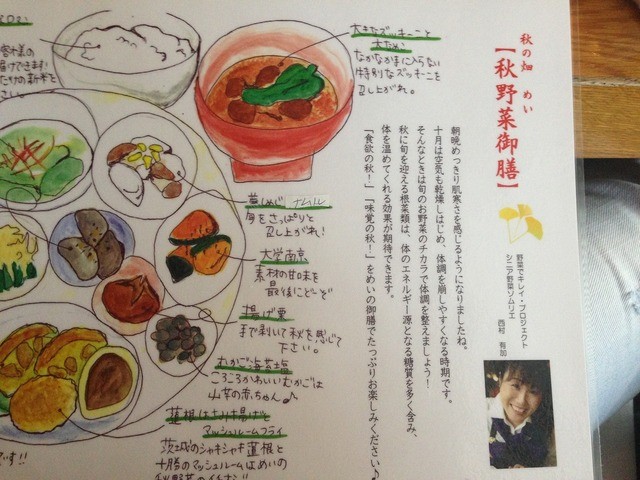 秋の畑 めい
【秋野菜御膳】
野菜でキレイ・プロジェクト
シニア野菜ソムリエ
西村 有加
朝晩めっきり肌寒さを感じるようになりましたね。
十月は空気も乾燥しはじめ、体調を崩しやすくなる時期です。
そんなときは旬のお野菜のチカラで体調を整えましょう!
秋に旬を迎える根菜類は、体のエネルギー源となる糖質を多く含み、
体を温めてくれる効果が期待できます。
「食欲の秋!」「味覚の秋!」をめいの御膳でたっぷりお楽しみください♪
大きなズッキーニと
なかなか手に入らない
特別なズッキーニを
召し上がれ。
客様の
届けできます!
たりの新米と
さい。
ナムル
をさっぱりと
召し上がれ!
大学南京
素材の甘味を
最後にどーぞ
揚げ栗
まで剥いて秋を感じて
下さい。
むかご海苔塩
ころころかわいいむかごは
山芋の赤ちゃん♪
蓮根はさみ揚げと
マッシュルームフライ
茨城のシャキシャキ蓮根と
十勝のマッシュルームはめいの
です!!